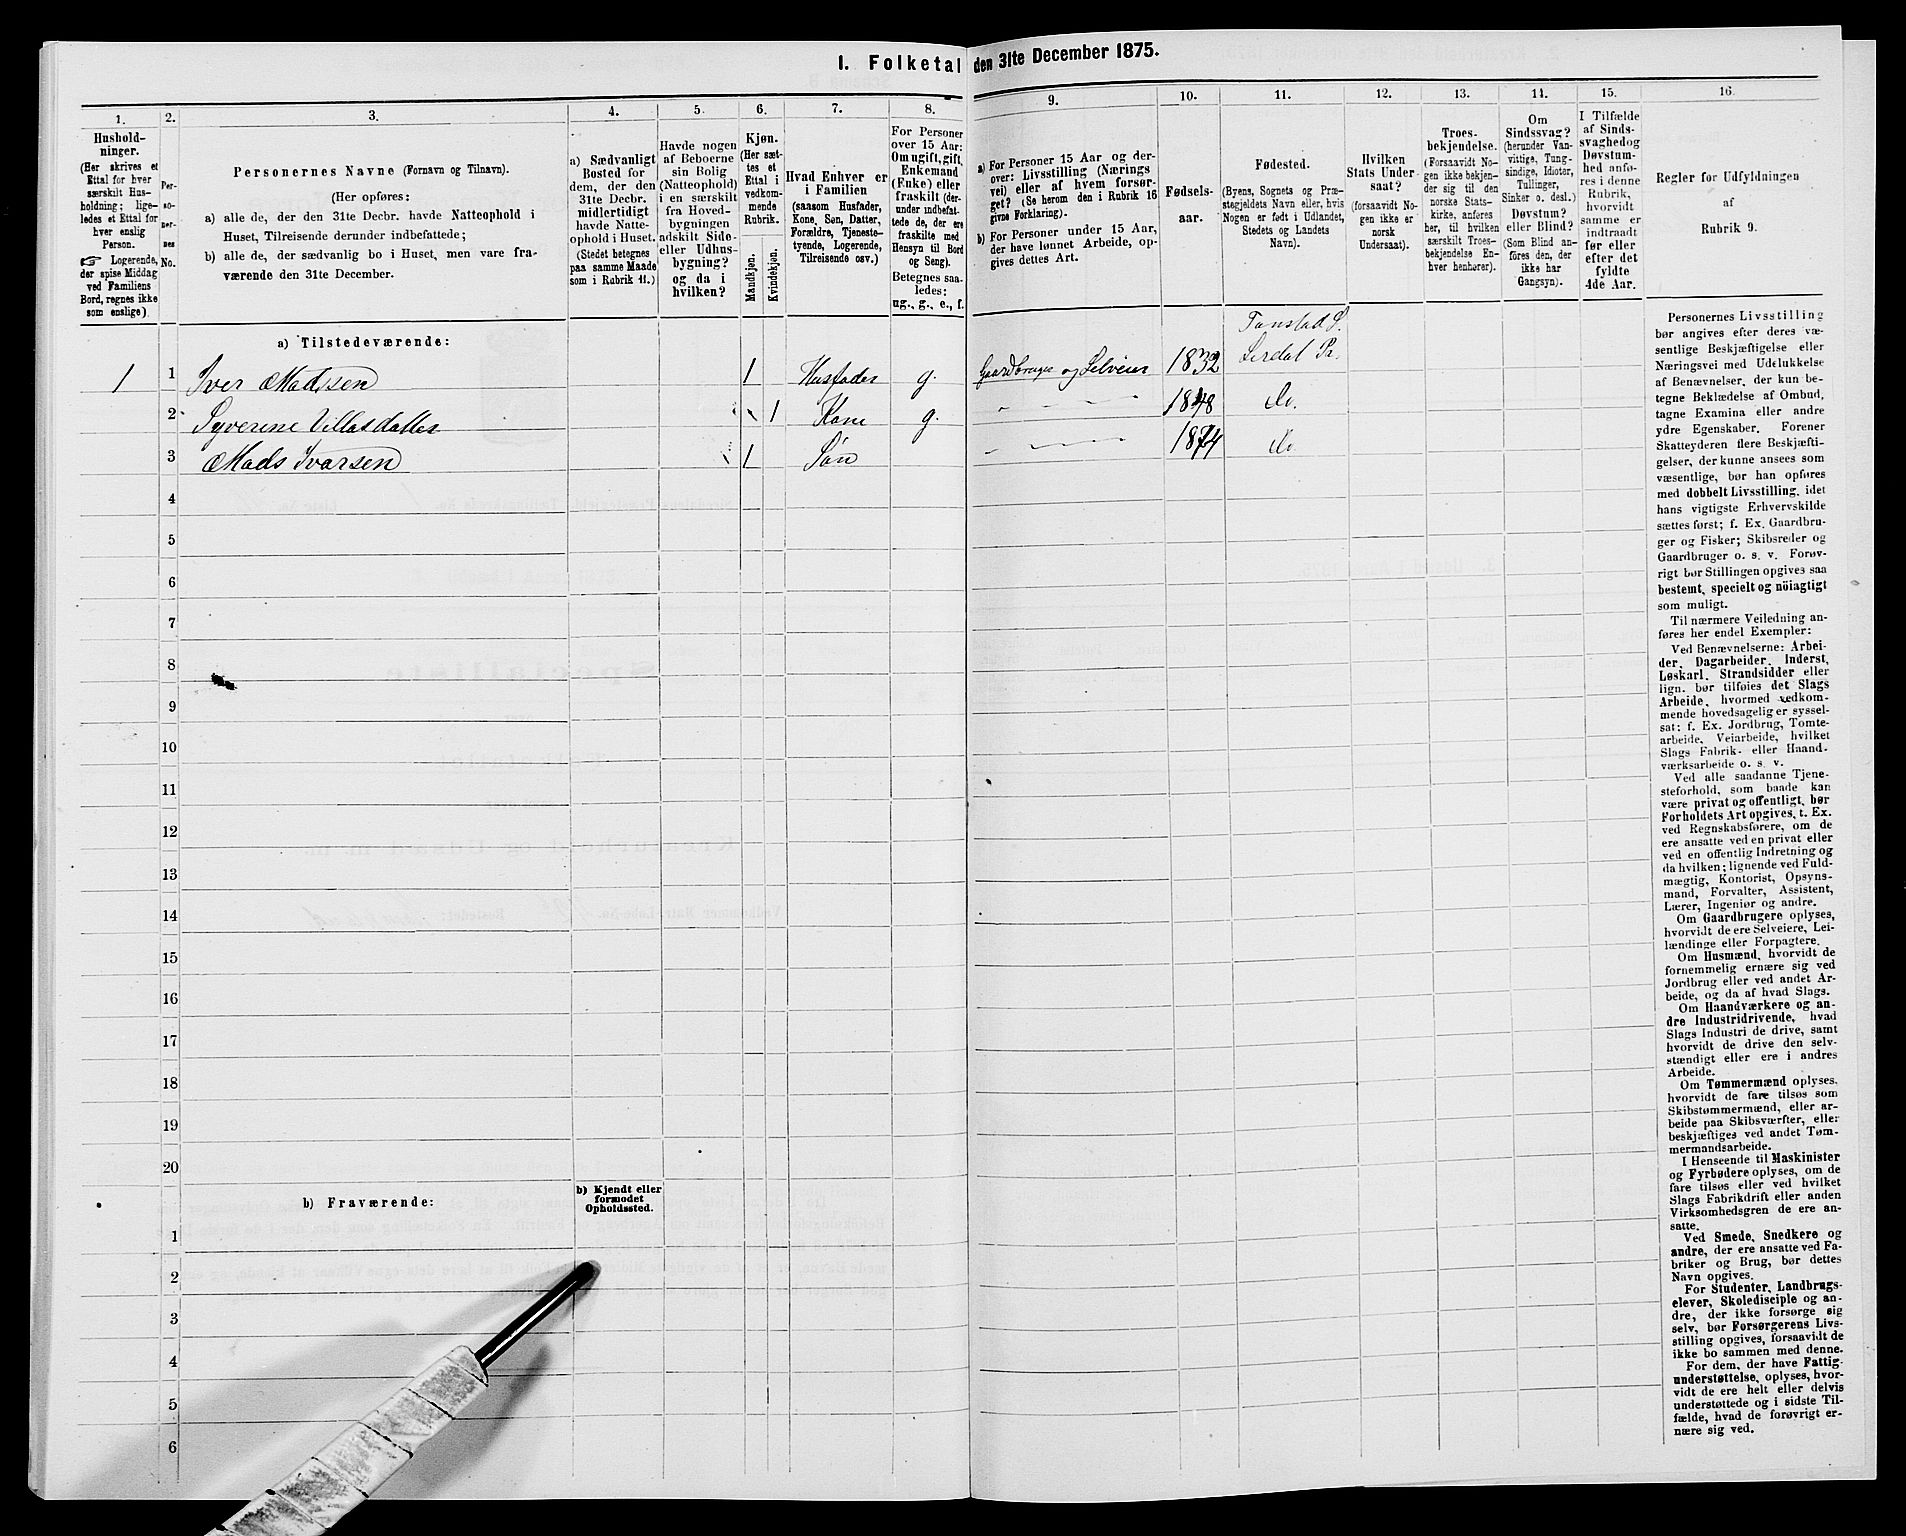 I. Folketal den 31te December 1875.
1.
Hushold-
ninger.
(Her skrives et
Ettal for hver
særskilt Hus-
holdning; lige-
ledes et Ettal for
hver enslig
Person.
☞ Logerende,
der spise Middag
ved Familiens
Bord, regnes ikke
som enslige).
2.
Per-
so-
ner-
nes
No.
3.
Personernes Navne (Fornavn og Tilnavn).
(Her opføres:
a) alle de, der den 31te Decbr. havde Natteophold i
Huset, Tilreisende derunder indbefattede;
b) alle de, der sædvanlig bo i Huset, men vare fra-
værende den 31te December.
4.
a) Sædvanligt
Bosted for
dem, der den
31te Decbr.
midlertidigt
havde Natte-
ophold i Huset.
(Stedet betegnes
paa samme Maade
som i Rubrik 11.)
5.
Havde nogen
af Beboerne
sin Bolig
(Natteophold)
i en særskilt
fra Hoved-
bygningen
adskilt Side-
eller Udhus-
bygning?
og da i
hvilken?
6.
Kjøn.
(Her sæt-
tes et
Ettal i
vedkom-
mende
Rubrik.
Mandkjøn.
Kvindekjøn.
7.
Hvad Enhver er
i Familien
(saasom Husfader,
Kone, Søn, Datter,
Forældre, Tjeneste-
tyende, Logerende,
Tilreisende osv.)
8.
For Personer
over 15 Aar:
Om ugift, gift,
Enkemand
(Enke) eller
fraskilt (der-
under indbefat-
tede de, der ere
fraskilte med
Hensyn til Bord
og Seng).
Betegnes saa-
ledes:
ug., g., e., f.
9.
a) For Personer 15 Aar og der-
over: Livsstilling (Nærings
vei) eller af hvem forsør-
get? (Se herom den i Rubrik 16
givne Forklaring).
b) For Personer under 15 Aar,
der have lønnet Arbeide, op-
gives dettes Art.
10.
Fødsels-
aar.
11.
Fødested.
(Byens, Sognets og Præ-
stegjeldets Navn eller, hvis
Nogen er født i Udlandet,
Stedets og Landets
Navn).
12.
Hvilken
Stats Under
saat?
(forsaavidt No-
gen ikke er
norsk
Undersaat).
13.
Troes-
bekjendelse.
(Forsaavidt No-
gen ikke bekjen-
der sig til den
norske Stats-
kirke, anføres
her, til hvilken
særskilt Troes-
bekjendelse En-
hver henhører).
14.
Om
Sindssvag?
(herunder Van-
vittige, Tung-
sindige, Idioter,
Tullinger,
Sinker o. desl.)
Døvstum?
eller Blind?
(Som Blind an-
føres den, der
ikke har
Gangsyn).
15.
I Tilfælde
af Sinds-
svaghed og
Døvstum-
hed anfø-
res i denne
Rubrik,
hvorvidt
samme er
indtraadt
før eller
efter det
fyldte
4de Aar.
16.
Regler for Udfyldningen
af
Rubrik 9.
a) Tilstedeværende:
1 1 Iver Madssen 1 Husfader g. Gaardbruger og Selveier 1832 Lerdal Pr.
2 1 Kone g. 1848 Do.
3 Mads Ivarsen 1 Søn 1874 Do.
4
5
6
7
8
9
10
11
12
13
14
15
16
17
18
19
20
b) Fraværende:
b) Kjendt eller
formodet
Opholdssted.
1
2
3
4
5
6
Personernes Livsstilling
bør angives efter deres væ-
sentlige Beskjæftigelse eller
Næringsvei med Udelukkelse
af Benævnelser, der kun be-
tegne Beklædelse af Ombud,
tagne Examina eller andre
ydre Egenskaber. Forener
Skatteyderen flere Beskjæfti-
gelser, der kunne ansees som
væsentlige, bør han opføres
med dobbelt Livsstilling, idet
hans vigtigste Erhvervskilde
sættes først; f. Ex. Gaardbru-
ger og Fisker; Skibsreder og
Gaardbruger o. s. v. Forøv-
rigt bør Stillingen opgives saa
bestemt, specielt og nöiagtigt
som muligt.
Til nærmere Veiledning an-
føres her endel Exempler:
Ved Benævnelserne: Arbei-
der, Dagarbeider, Inderst,
Løskarl, Strandsidder eller
lign. bør tilføies det Slags
Arbeide, hvormed vedkom-
mende hovedsagelig er syssel-
sat; f. Ex. Jordbrug, Tomte-
arbeide, Veiarbeide, hvilket
Slags Fabrik- eller Haand-
værksarbeide o. s. v.
Ved alle saadanne Tjene-
steforhold, som baade kan
være privat og offentligt, bør
Forholdets Art opgives, t. Ex.
ved Regnskabsførere, om de
ere ansatte ved en privat eller
ved en offentlig Indretning og
da hvilken; lignende ved Fuld-
mægtig, Kontorist, Opsyns-
mand, Forvalter, Assistent,
Lærer, Ingeniør og andre.
Om Gaardbrugere oplyses,
hvorvidt de ere Selveiere, Lei-
lændinge eller Forpagtere.
Om Husmænd, hvorvidt de
fornemmelig ernære sig ved
Jordbrug eller ved andet Ar-
beide, og da af hvad Slags.
Om Haandværkere og an-
dre Industridrivende, hvad
Slags Industri de drive, samt
hvorvidt de drive den selv-
stændigt eller ere i andres
Arbeide.
Om Tømmermænd oplyses,
hvorvidt de fare tilsøs som
Skibstømmermænd, eller ar-
beide paa Skibsværfter, eller
beskjæftiges ved andet Tøm-
mermandsarbeide.
I Henseende til Maskinister
og Fyrbødere oplyses, om de
fare tilsøs eller ved hvilket
Slags Fabrikdrift eller anden
Virksomhedsgren de ere an-
satte.
Ved Smede, Snedkere og
andre, der ere ansatte ved Fa-
briker og Brug, bør dettes
Navn opgives.
For Studenter, Landbrugs-
elever, Skoledisciple og an-
dre, der ikke forsørge sig
selv, bør Forsørgerens Livs-
stilling opgives, forsaavidt de
ikke bo sammen med denne.
For dem, der have Fattig-
understøttelse, oplyses, hvor-
vidt de ere helt eller delvis
understøttede og i sidste Til-
fælde, hvad de forøvrigt er-
nære sig ved.